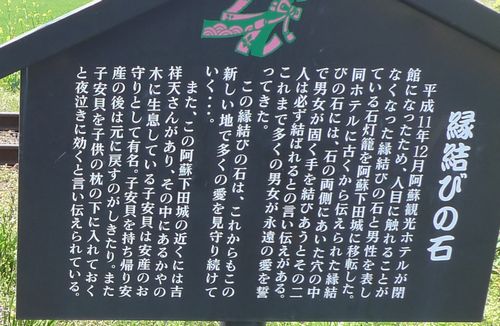 縁結びの石
平成11年12月阿蘇観光ホテルが閉
館になったため、人目に触れることが
なくなった縁結びの石と男性を表し
ている石灯籠を阿蘇下田城に移転した。
同ホテルに古くから伝えられた縁結
びの石には、石の両側にあいた穴の中
で男女が固く手を結びあうとその二
人は必ず結ばれるとの言い伝えがある。
これまで多くの男女が永遠の愛を誓
ってきた。
この縁結びの石は、これからもこの
新しい地で多くの愛を見守り続けて
いく・・・。
また、この阿蘇下田城の近くには吉
祥天さんがあり、その中にあるかやの
木に生息している子安貝は安産のお
守りとして有名。子安貝を持ち帰り安
産の後は元に戻すのがしきたり。また
子安貝を子供の枕の下に入れておく
と夜泣きに効くと言い伝えられている。